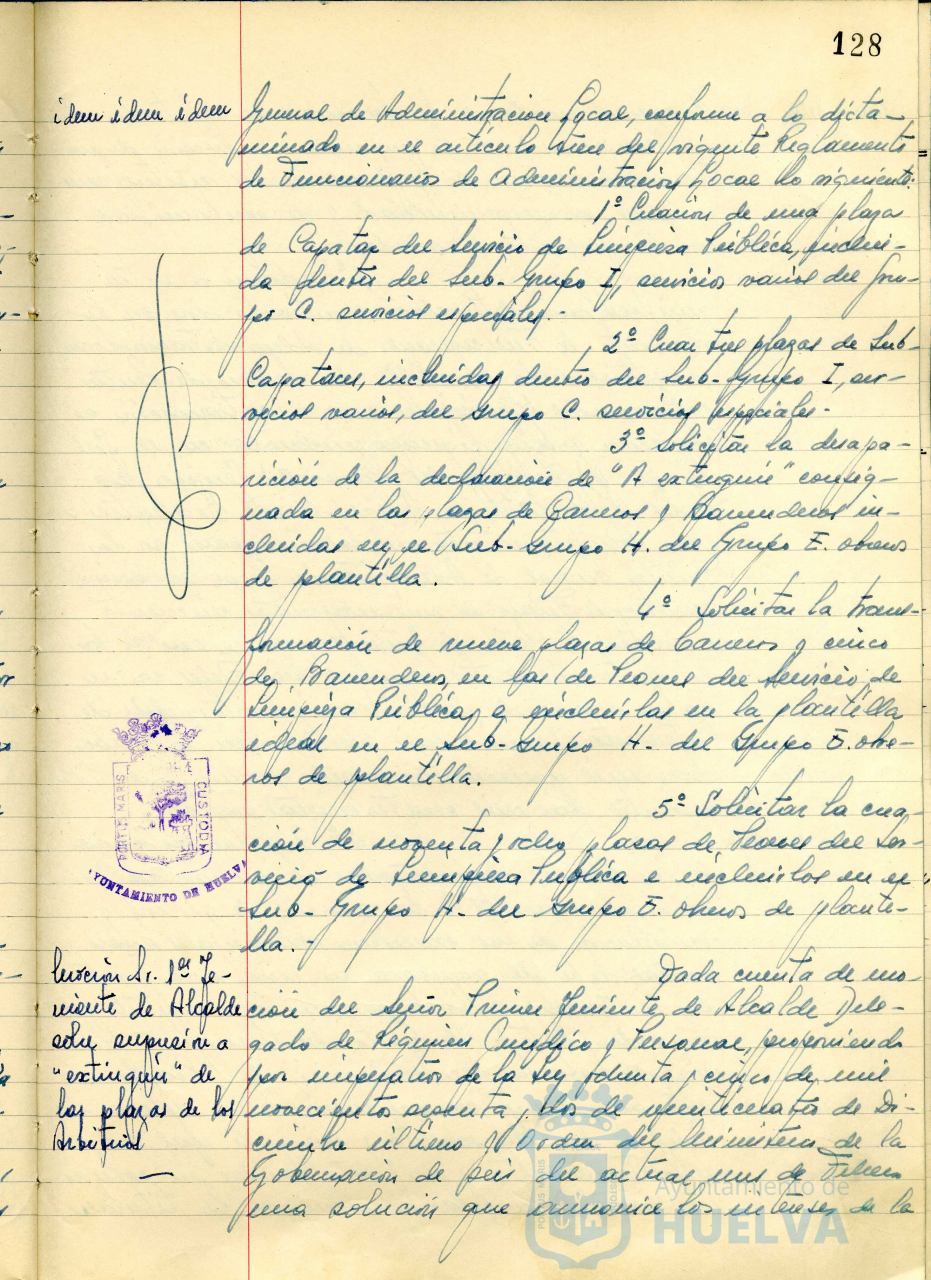 128
idem idem idem
General de Administracion Local, conforme a lo dicta-
minado en el artículo trece del vigente Reglamento
de Funcionarios de Administración Local lo siguiente:
1º Creación de una plaza
de Capataz del Servicio de Limpieza Pública, inclui-
da dentro del Sub-grupo I, servicios varios del Gru-
po C. servicios especiales.-
2º Crear tres plazas de Sub-
Capataces, incluidas dentro del Sub-Grupo I, ser-
vicios varios, del grupo C. servicios especiales.-
3º Solicitar la desapa-
rición de la declaración de "A extinguir" consig-
nada en las plazas de Carreros y Barrenderos in-
cluidas en el Sub-grupo H. del Grupo E. obreros
de plantilla.
4º Solicitar la trans-
formación de nueve plazas de Carreros y cinco
de Barrenderos, en las de Peones del Servicio de
Limpieza Pública e incluirlas en la plantilla
ideal en el Sub-grupo H- del Grupo E. obre-
ros de plantilla.
5º Solicitar la crea-
ción de noventa y ocho plazas de Peones del Ser-
vicio de Limpieza Pública e incluirlos en el
Sub-Grupo H- del Grupo E. obreros de planti-
lla.-
PORTUS MARIS CUSTODIA
AYUNTAMIENTO DE HUELVA
Moción Sr. 1er Te-
niente de Alcalde
sobre supresión a
"extinguir" de
las plazas de los
Arbitrios
Dada cuenta de mo-
ción del Señor Primer Teniente de Alcalde Dele-
gado de Régimen Jurídico y Personal, proponiendo
por imperativo de la Ley ochenta y cinco de mil
novecientos sesenta y dos de veinticuatro de Di-
ciembre último y Orden del Ministerio de la
Gobernación de seis del actual mes de Febrero
una solución que armonice los intereses de la
Ayuntamiento de
HUELVA